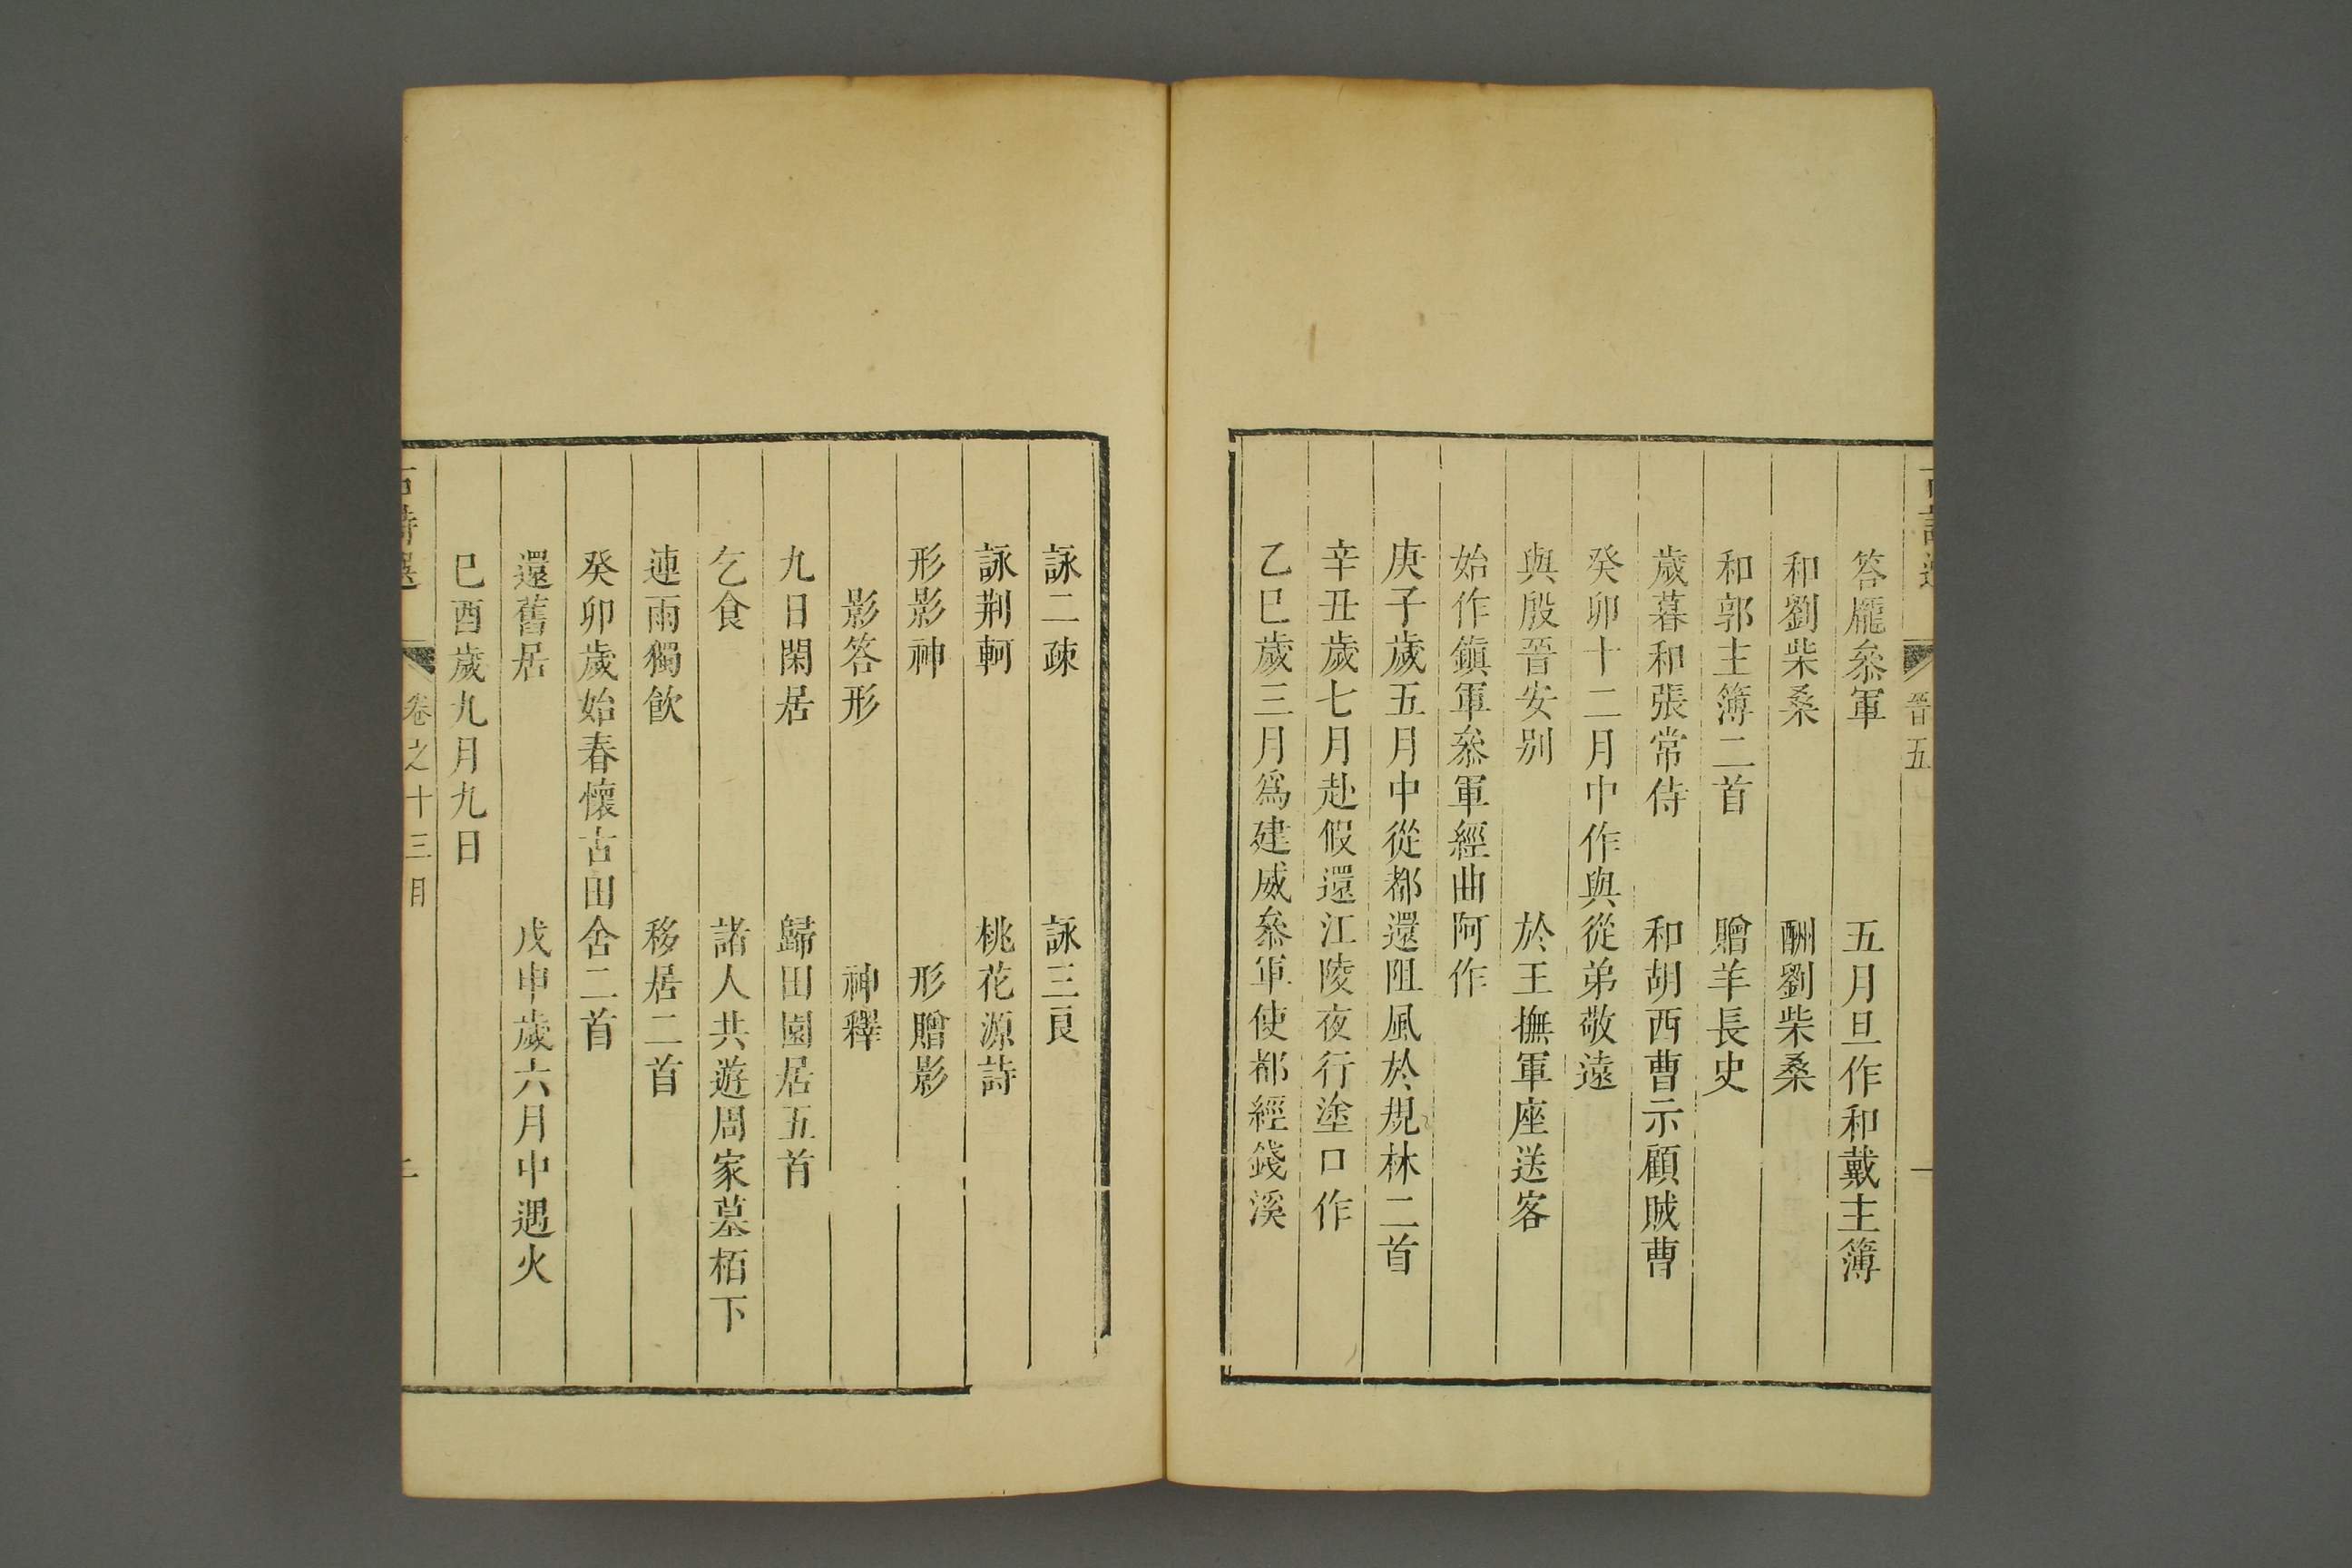 晉五
答龐叅軍　五月旦作和戴主簿
和劉柴桑　酬劉柴桑
和郭主簿二首　贈羊長史
歲暮和張常侍　和胡西曹示顧賊曹
癸卯十二月中作與從弟敬遠
與殷晉安別　於王撫軍座送客
始作鎮軍叅軍經曲阿作
庚子歲五月中從都還阻風於規林二首
辛丑歲七月赴假還江陵夜行塗口作
乙巳歲三月爲建威叅軍使都經錢溪
詠二疎　詠三良
詠荆軻　桃花源詩
形影神　形贈影
影答形　神釋
九日閑居　歸田園居五首
乞食　諸人共遊周家墓栢下
連雨獨飮　移居二首
癸卯歲始春懷古田舍二首
還舊居　戊申歲六月中遇火
巳酉歲九月九日
古詩選　卷之十三目